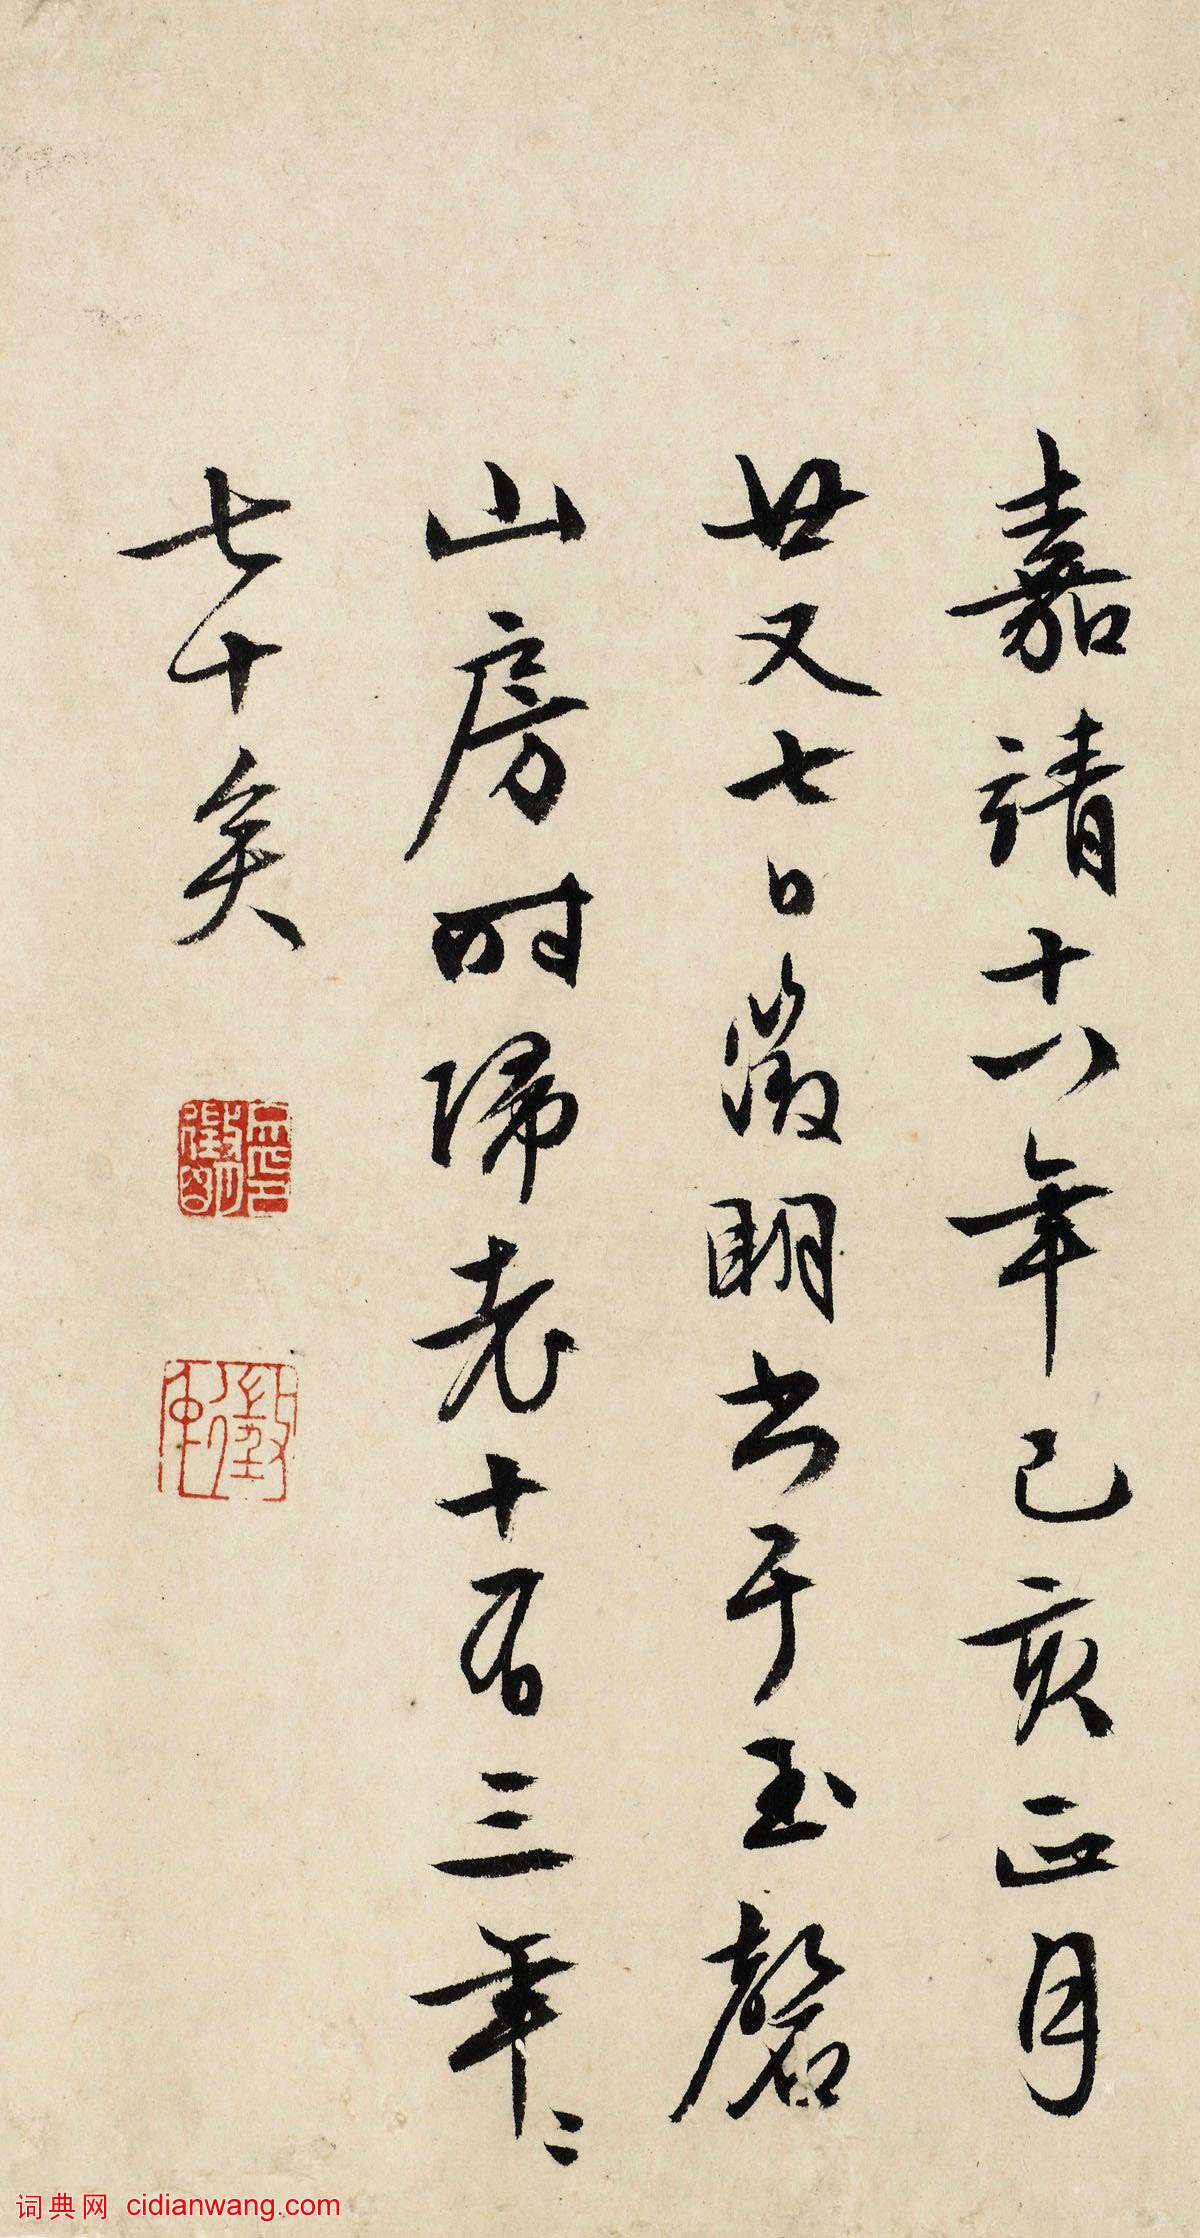 嘉靖十八年己亥正月
廿又七日徵明書于玉磬
山房時歸老十有三年〻
七十矣
徵明
詞典网 cidianwang.com